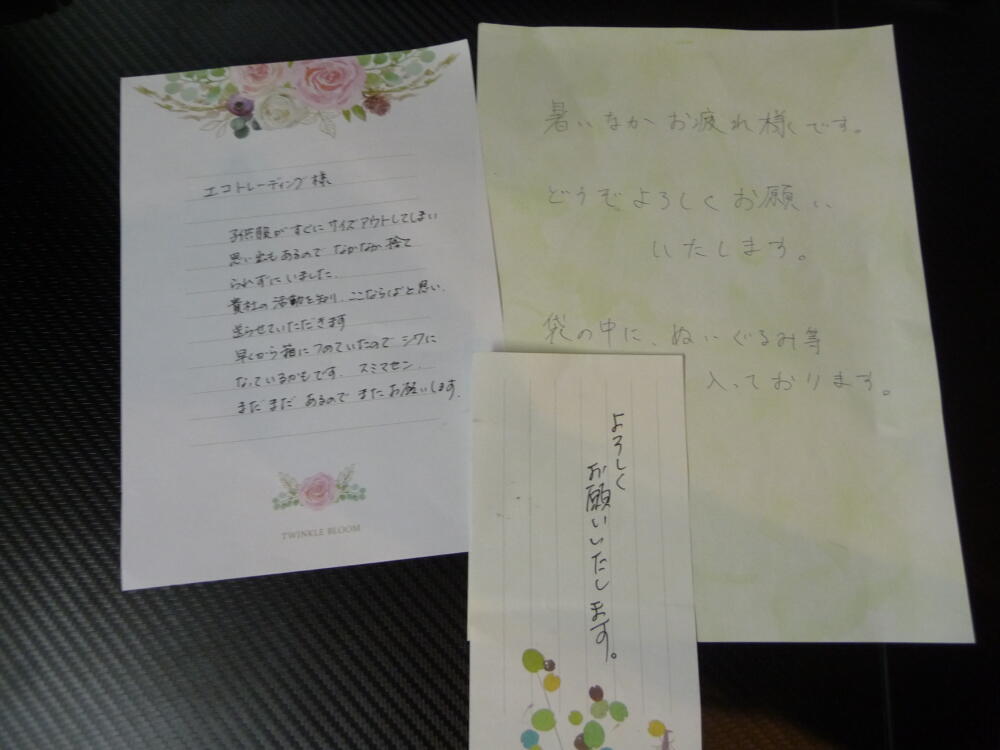 エコトレーディング様
子供服がすぐにサイズアウトしてしまい
思い出もあるので なかなか捨て
られずにいました.
貴社の活動を知り、ここならばと思い、
送らせていただきます
早くから箱につめていたので シワに
なっているかもです. スミマセン.
まだまだ あるので またお願いします.
TWINKLE BLOOM
暑いなかお疲れ様です。
どうぞよろしくお願い
いたします。
袋の中に、ぬいぐるみ等
入っております。
よろしく
お願いいたします。